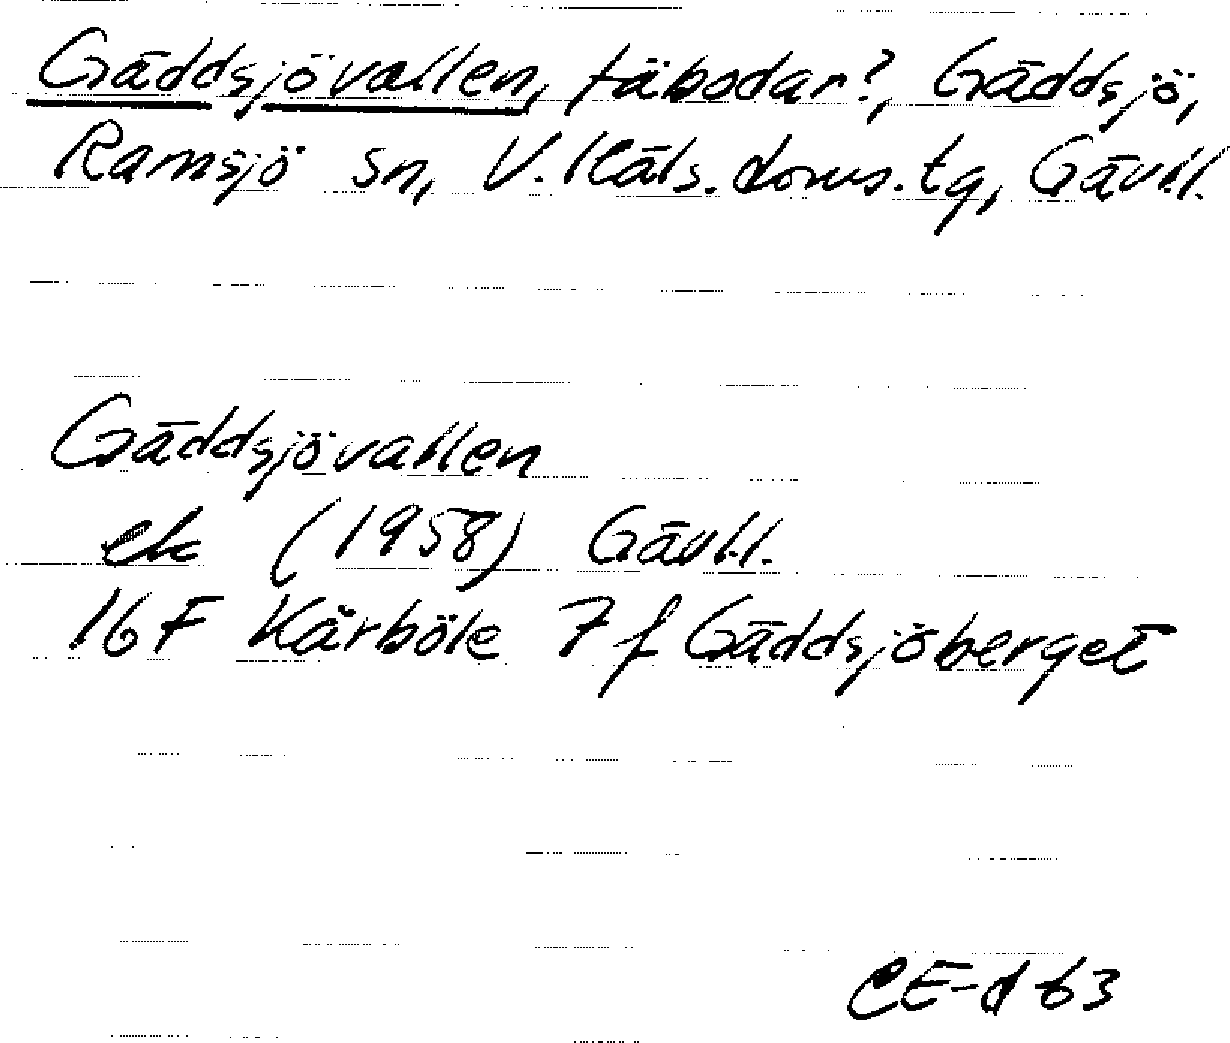 Gäddsjövallen, fäbodar?, Gäddsjö,
Ramsjö sn, V. Häls. doms. tg, Gävl.l.
Gäddsjövallen
ek (1958) Gävl.l.
16 F Kårböle 7 f Gäddsjöberget
CE-d 63